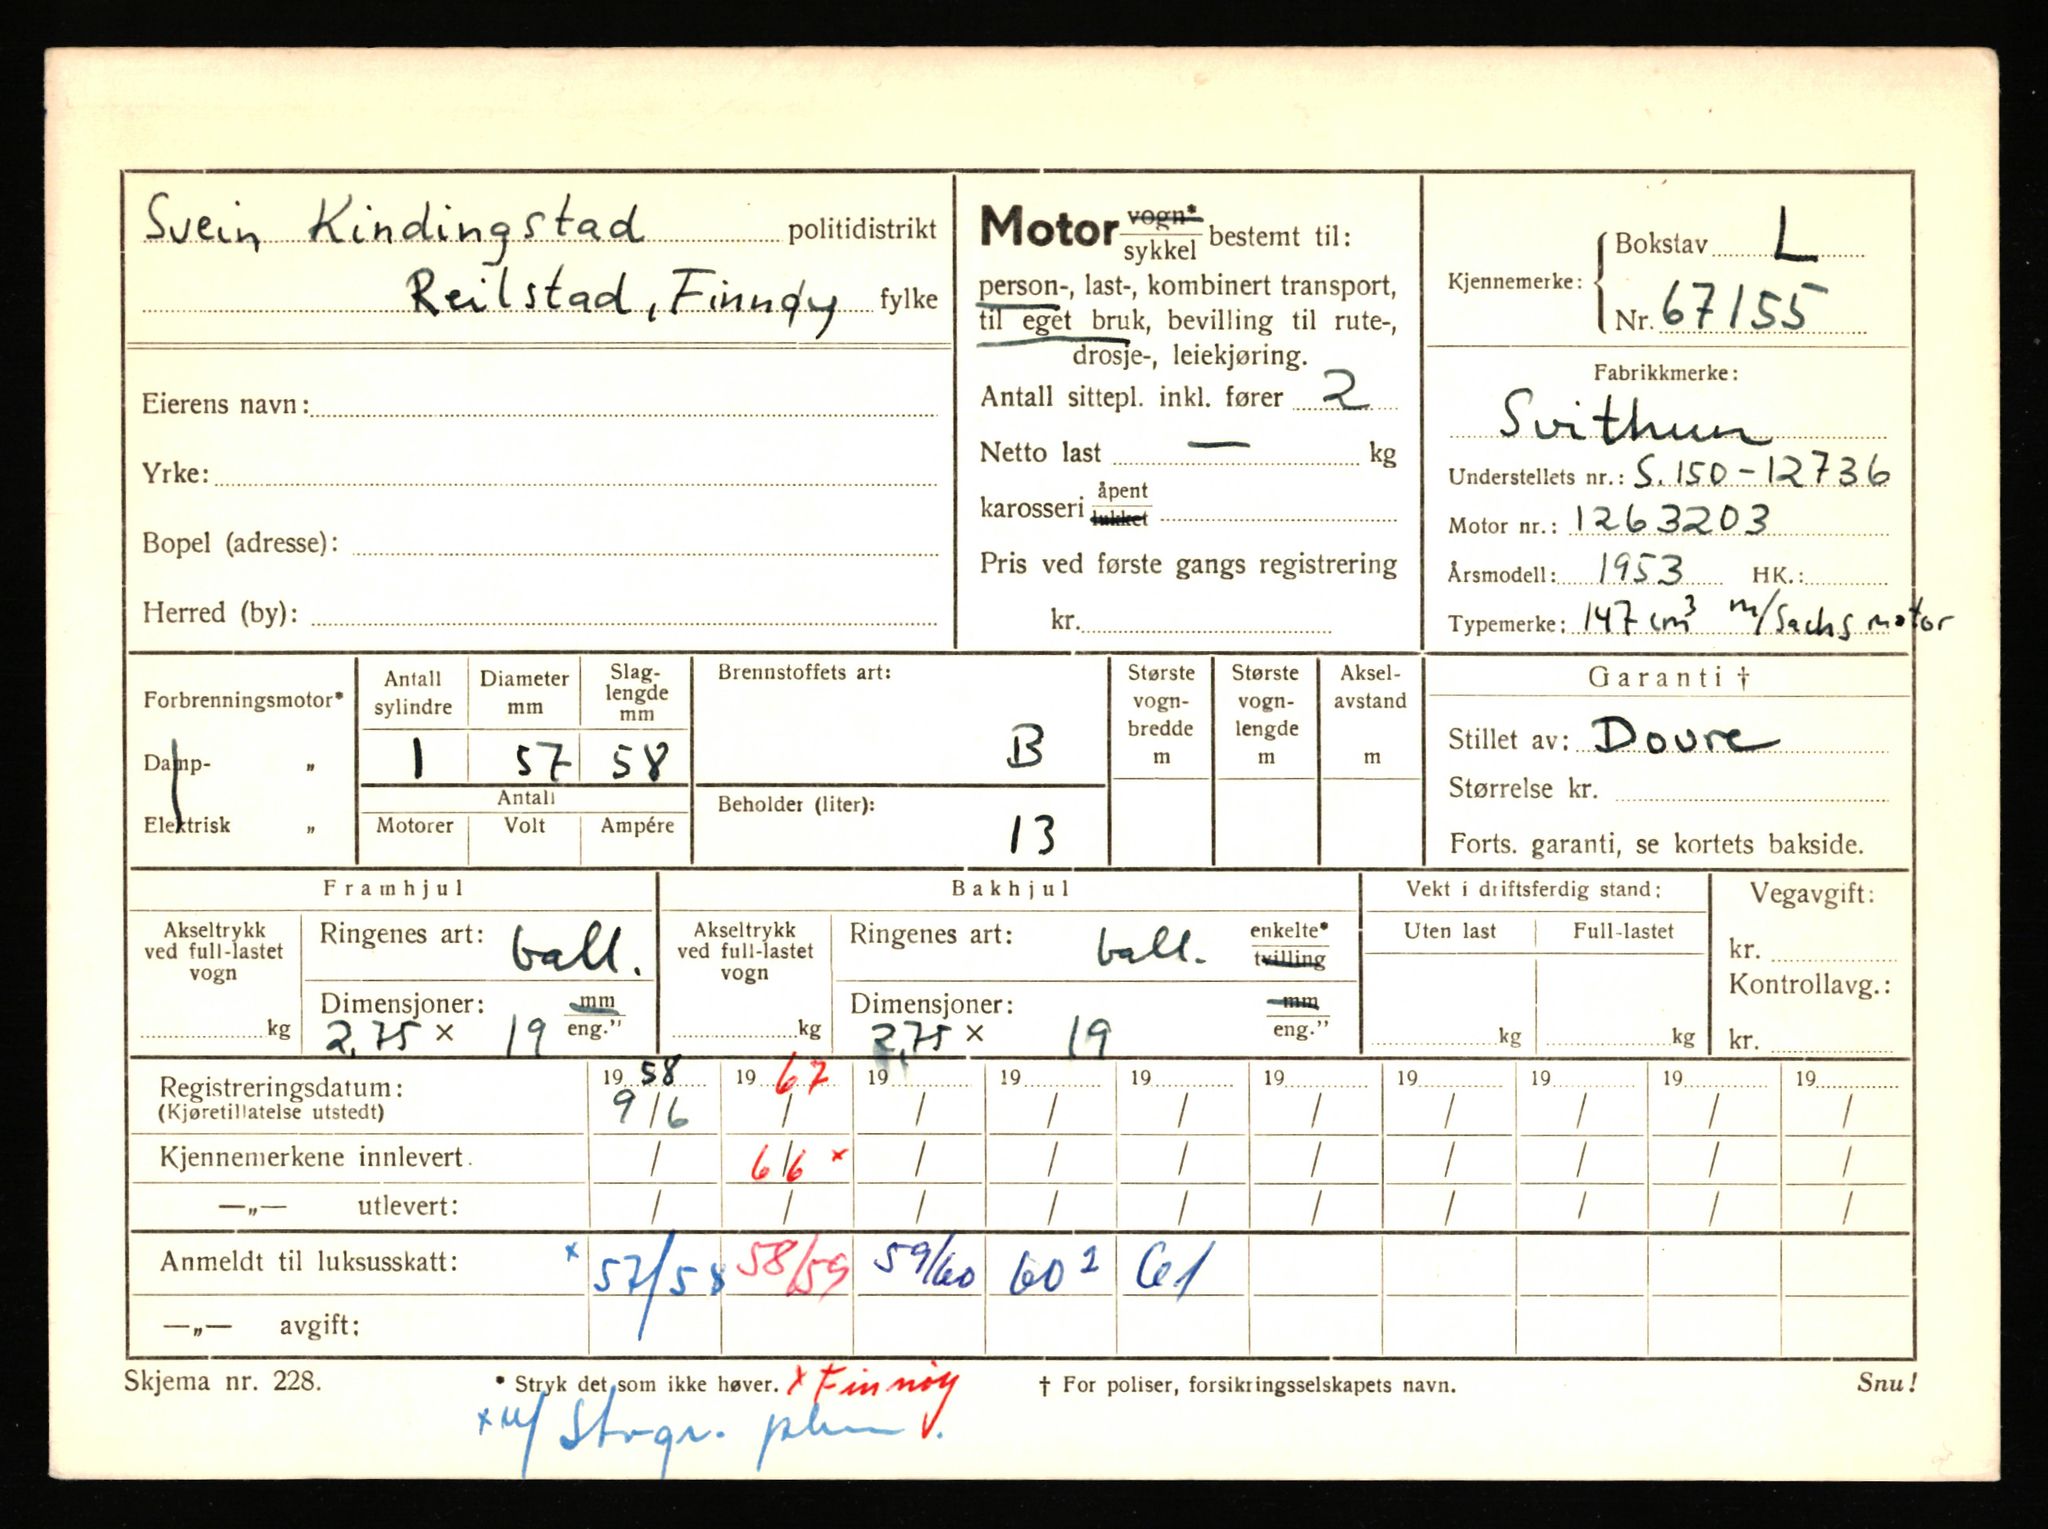 Svein Kindingstad politidistrikt
Reilstad, Finnøy fylke
Eierens navn:
Yrke:
Bopel (adresse):
Herred (by):
Motor vogn*
sykkel bestemt til:
person-, last-, kombinert transport,
til eget bruk, bevilling til rute-,
drosje-, leiekjøring.
Antall sittepl. inkl. fører 2
Netto last — kg
karosseri åpent
lukket
Pris ved første gangs registrering
kr.
Kjennemerke: Bokstav L
Nr. 67155
Fabrikkmerke:
Svithun
Understellets nr.: S.150-12736
Motor nr.: 1263203
Årsmodell: 1953 HK.:
Typemerke: 147 cm³ m/Sachs motor
Forbrenningsmotor*
Damp- „
Elektrisk „
Antall sylindre Diameter mm Slag-lengde mm
1 57 58
Antall
Motorer Volt Ampére
Brennstoffets art:
B
Beholder (liter):
13
Største vogn-bredde m
Største vogn-lengde m
Aksel-avstand m
Garanti †
Stillet av: Dovre
Størrelse kr.
Forts. garanti, se kortets bakside.
Framhjul
Akseltrykk ved full-lastet vogn
kg
Ringenes art: ball.
Dimensjoner: mm
2,75 × 19 eng.”
Bakhjul
Akseltrykk ved full-lastet vogn
kg
Ringenes art: ball. enkelte*
tvilling
Dimensjoner: mm
2,75 × 19 eng.”
Vekt i driftsferdig stand:
Uten last Full-lastet
kg kg
Vegavgift:
kr.
Kontrollavg.:
kr.
Registreringsdatum: 19 58 19 67 19 19 19 19 19 19 19 19
(Kjøretillatelse utstedt) 9/6 / / / / / / / / /
Kjennemerkene innlevert. / 6/6 × / / / / / / / /
—„— utlevert: / / / / / / / / / /
Anmeldt til luksusskatt: × 57/58 58/59 59/60 60² 61
—„— avgift:
Skjema nr. 228. * Stryk det som ikke høver. × Finnøy † For poliser, forsikringsselskapets navn. Snu!